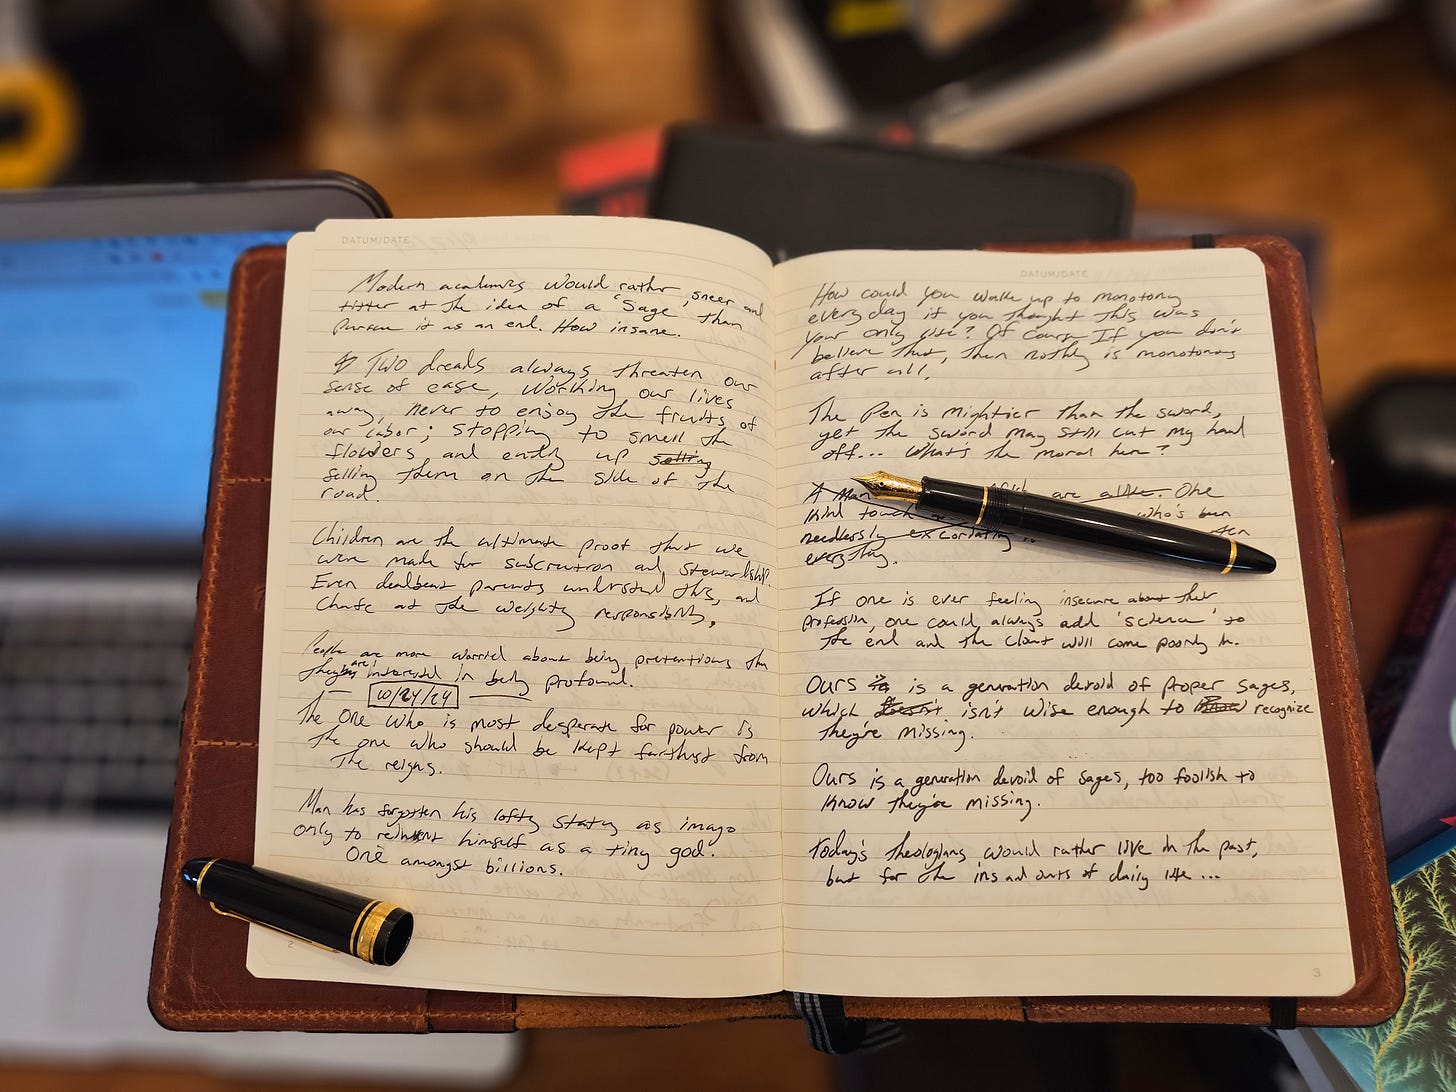 DATUM/DATE
Modern academics would rather sneer and
titter at the idea of a 'Sage' than
pursue it as an end. How insane.
Two dreads always threaten our
sense of ease, working our lives
away, never to enjoy the fruits of
our labor; stopping to smell the
flowers and ending up selling
selling them on the side of the
road.
Children are the ultimate proof that we
were made for subcreation and stewardship.
Even deadbeat parents understand this, and
chafe at the weighty responsibility.
People are more worried about being pretentious than
they are interested in being profound.
10/24/24
The one who is most desperate for power is
the one who should be kept farthest from
the reigns.
Man has forgotten his lofty status as imago
only to reinvent himself as a tiny god.
One amongst billions.
2
DATUM/DATE
How could you wake up to monotony
every day if you thought this was
your only life? Of course If you don't
believe that, then nothing is monotonous
after all.
The Pen is mightier than the sword,
yet the sword may still cut my hand
off... What's the moral here?
A Man are alike. One
kind touch who's been
needlessly
everything.
If one is ever feeling insecure about their
profession, one could always add 'science' to
the end and the clout will come pouring in.
Ours is a generation devoid of proper sages,
which doesn't isn't wise enough to know recognize
they're missing.
Ours is a generation devoid of sages, too foolish to
know they're missing.
Today's theologians would rather live in the past,
but for the ins and outs of daily life ...
3